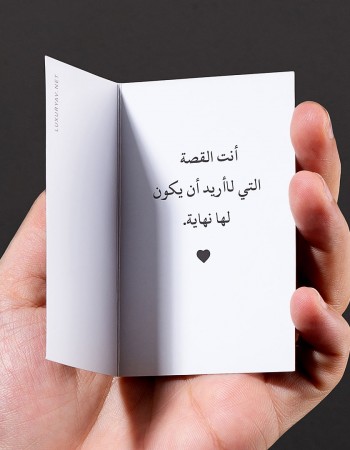 أنت القصة
التي لاأريد أن يكون
لها نهاية.